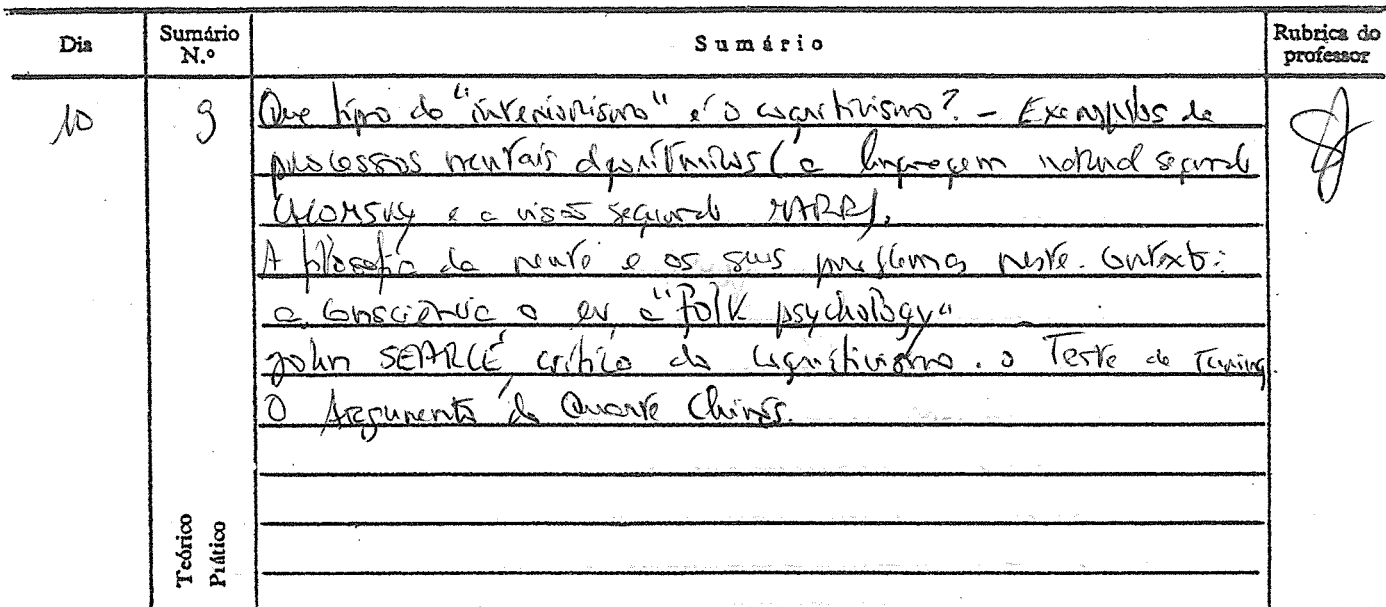 Dia
Sumário N.º
Sumário
Rubrica do professor
10
9
Que tipo de "interiorismo" é o cognitivismo? - Exemplos de
processos mentais algorítmicos (a linguagem natural segundo
CHOMSKY e a visão segundo MARR).
A filosofia da mente e os seus problemas neste contexto:
a consciência o eu a "folk psychology"
John SEARLE, crítico do cognitivismo. O Teste de Turing
O Argumento do Quarto Chinês.
Teórico
Prático